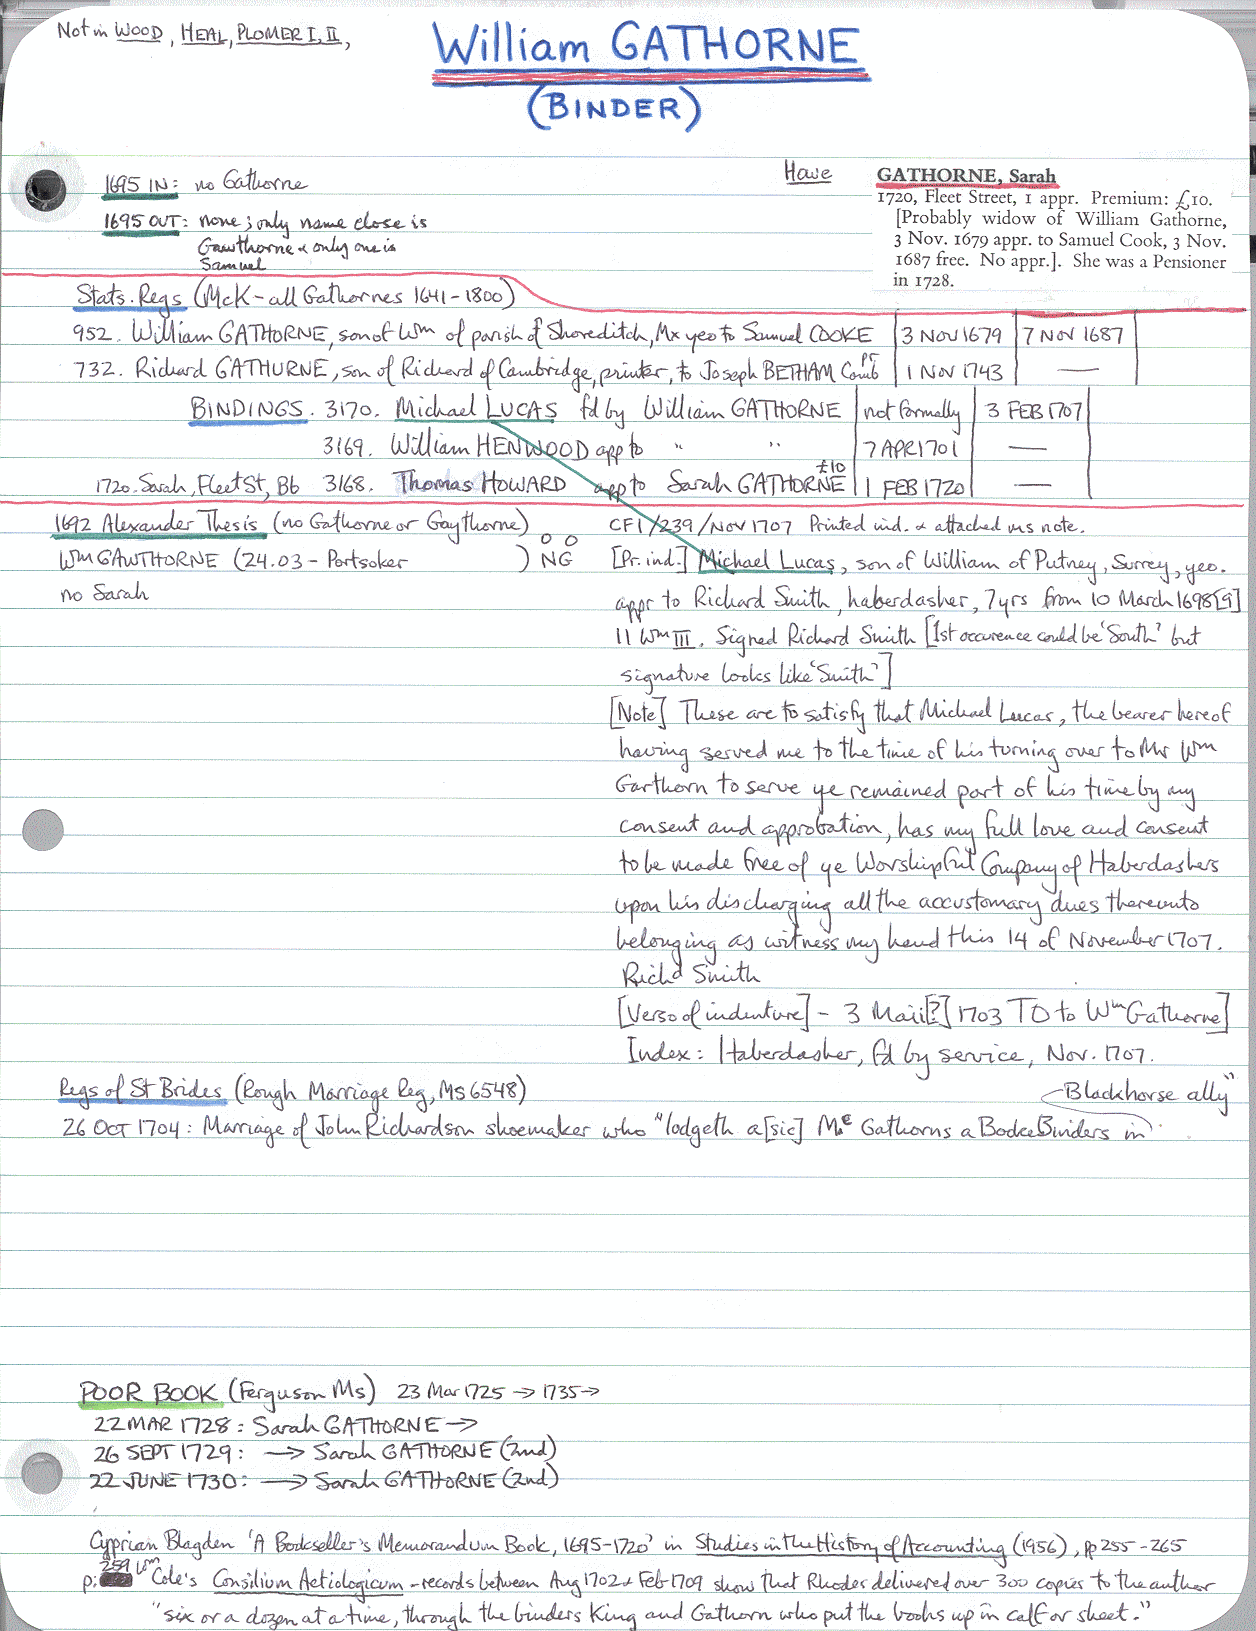 Not in WOOD, HEAL, PLOMER I, II,
William GATHORNE
(BINDER)
1695 IN: no Gathorne
1695 OUT: none; only name close is
Gawthorne & only one is
Samuel
Howe
GATHORNE, Sarah
1720, Fleet Street, 1 appr. Premium: £10.
[Probably widow of William Gathorne,
3 Nov. 1679 appr. to Samuel Cook, 3 Nov.
1687 free. No appr.]. She was a Pensioner
in 1728.
Stats. Regs (McK - all Gathornes 1641-1800)
952. William GATHORNE, son of Wm of parish of Shoreditch, Mx yeo to Samuel COOKE 3 NOV 1679 7 NOV 1687
732. Richard GATHURNE, son of Richard of Cambridge, printer, to Joseph BETHAM Camb PT 1 NOV 1743 —
BINDINGS. 3170. Michael LUCAS fd by William GATHORNE not formally 3 FEB 1707
3169. William HENWOOD app to " " 7 APR 1701 —
1720. Sarah, Fleet St, Bb 3168. Thomas HOWARD app to Sarah GATHORNE £10 1 FEB 1720 —
1692 Alexander Thesis (no Gathorne or Gaythorne)
Wm GAWTHORNE (24.03 - Portsoker ) NG
no Sarah
CF1/239/Nov 1707 Printed ind. & attached ms note.
[Pr. ind.] Michael Lucas, son of William of Putney, Surrey, yeo.
appr to Richard Smith, haberdasher, 7yrs from 10 March 1698[9]
11 Wm III. Signed Richard Smith [1st occurence could be 'South' but
signature looks like 'Smith']
[Note] These are to satisfy that Michael Lucas, the bearer hereof
having served me to the time of his turning over to Mr Wm
Garthorn to serve ye remained part of his time by my
consent and approbation, has my full love and consent
to be made free of ye Worshipful Company of Haberdashers
upon his discharging all the accustomary dues thereunto
belonging as witness my hand this 14 of November 1707.
Richd Smith
[Verso of indenture] - 3 Maii[?] 1703 TO to Wm Gathorne]
Index: Haberdasher, fd by service, Nov. 1707.
Regs of St Brides (Rough Marriage Reg, MS 6548)
26 OCT 1704: Marriage of John Richardson shoemaker who "lodgeth a [sic] Mr Gathorns a BookeBinders in
Blackhorse ally"
POOR BOOK (Ferguson Ms) 23 Mar 1725 → 1735 →
22 MAR 1728: Sarah GATHORNE →
26 SEPT 1729: → Sarah GATHORNE (2nd)
22 JUNE 1730: → Sarah GATHORNE (2nd)
Cyprian Blagden 'A Bookseller's Memorandum Book, 1695-1720' in Studies in the History of Accounting (1956), pp 255-265
p: 259 Wm Cole's Consilium Aetiologicum - records between Aug 1702 & Feb 1709 show that Rhodes delivered over 300 copies to the author
"six or a dozen at a time, through the binders King and Gathorn who put the books up in calf or sheet."